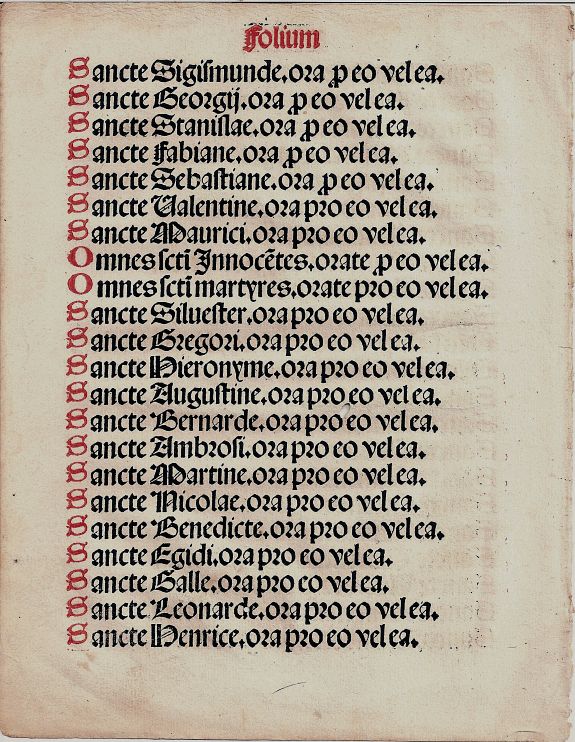 Folium
Sancte Sigismunde.ora ꝓ eo vel ea.
Sancte Georgij.ora ꝓ eo vel ea.
Sancte Stanislae.ora ꝓ eo vel ea.
Sancte Fabiane.ora ꝓ eo vel ea.
Sancte Sebastiane.ora ꝓ eo vel ea.
Sancte Valentine.ora pro eo vel ea.
Sancte Maurici.ora pro eo vel ea.
Omnes sctī Innocētes.orate ꝓ eo vel ea.
Omnes sctī martyres.orate pro eo vel ea.
Sancte Siluester.ora pro eo vel ea.
Sancte Gregori.ora pro eo vel ea.
Sancte Hieronyme.ora pro eo vel ea.
Sancte Augustine.ora pro eo vel ea.
Sancte Bernarde.ora pro eo vel ea.
Sancte Ambrosi.ora pro eo vel ea.
Sancte Martine.ora pro eo vel ea.
Sancte Nicolae.ora pro eo vel ea.
Sancte Benedicte.ora pro eo vel ea.
Sancte Egidi.ora pro eo vel ea.
Sancte Galle.ora pro eo vel ea.
Sancte Leonarde.ora pro eo vel ea.
Sancte Henrice.ora pro eo vel ea.